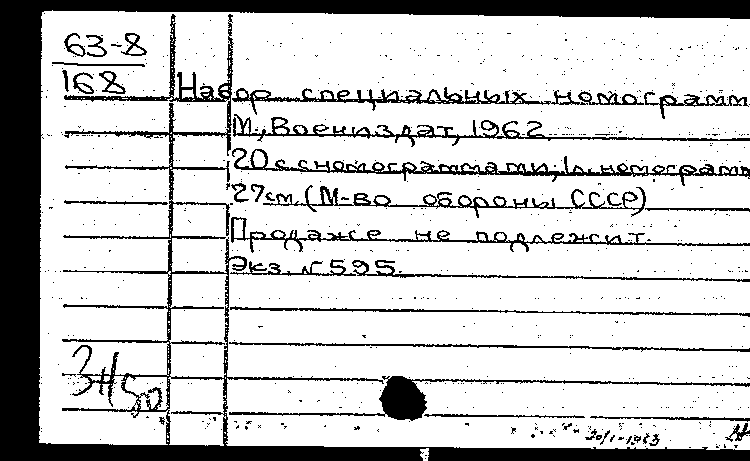 63-8
168
Набор специальных номограмм
М., Воениздат, 1962.
20 с с номограммами; 1 л. номограмм
27 см. (М-во обороны СССР)
Продаже не подлежит.
Экз. № 595.